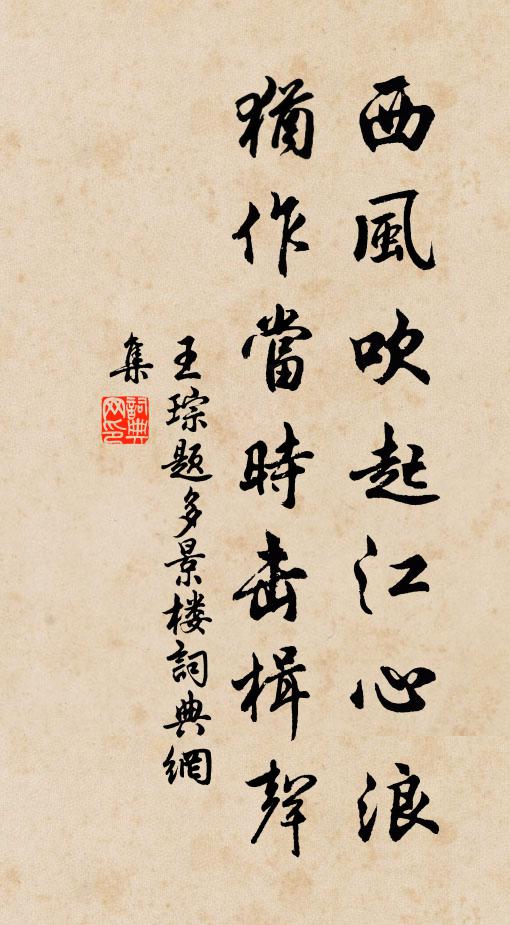 西風吹起江心浪
猶作當時击楫聲
王琮题多景楼詞典網
集
詞典
网印